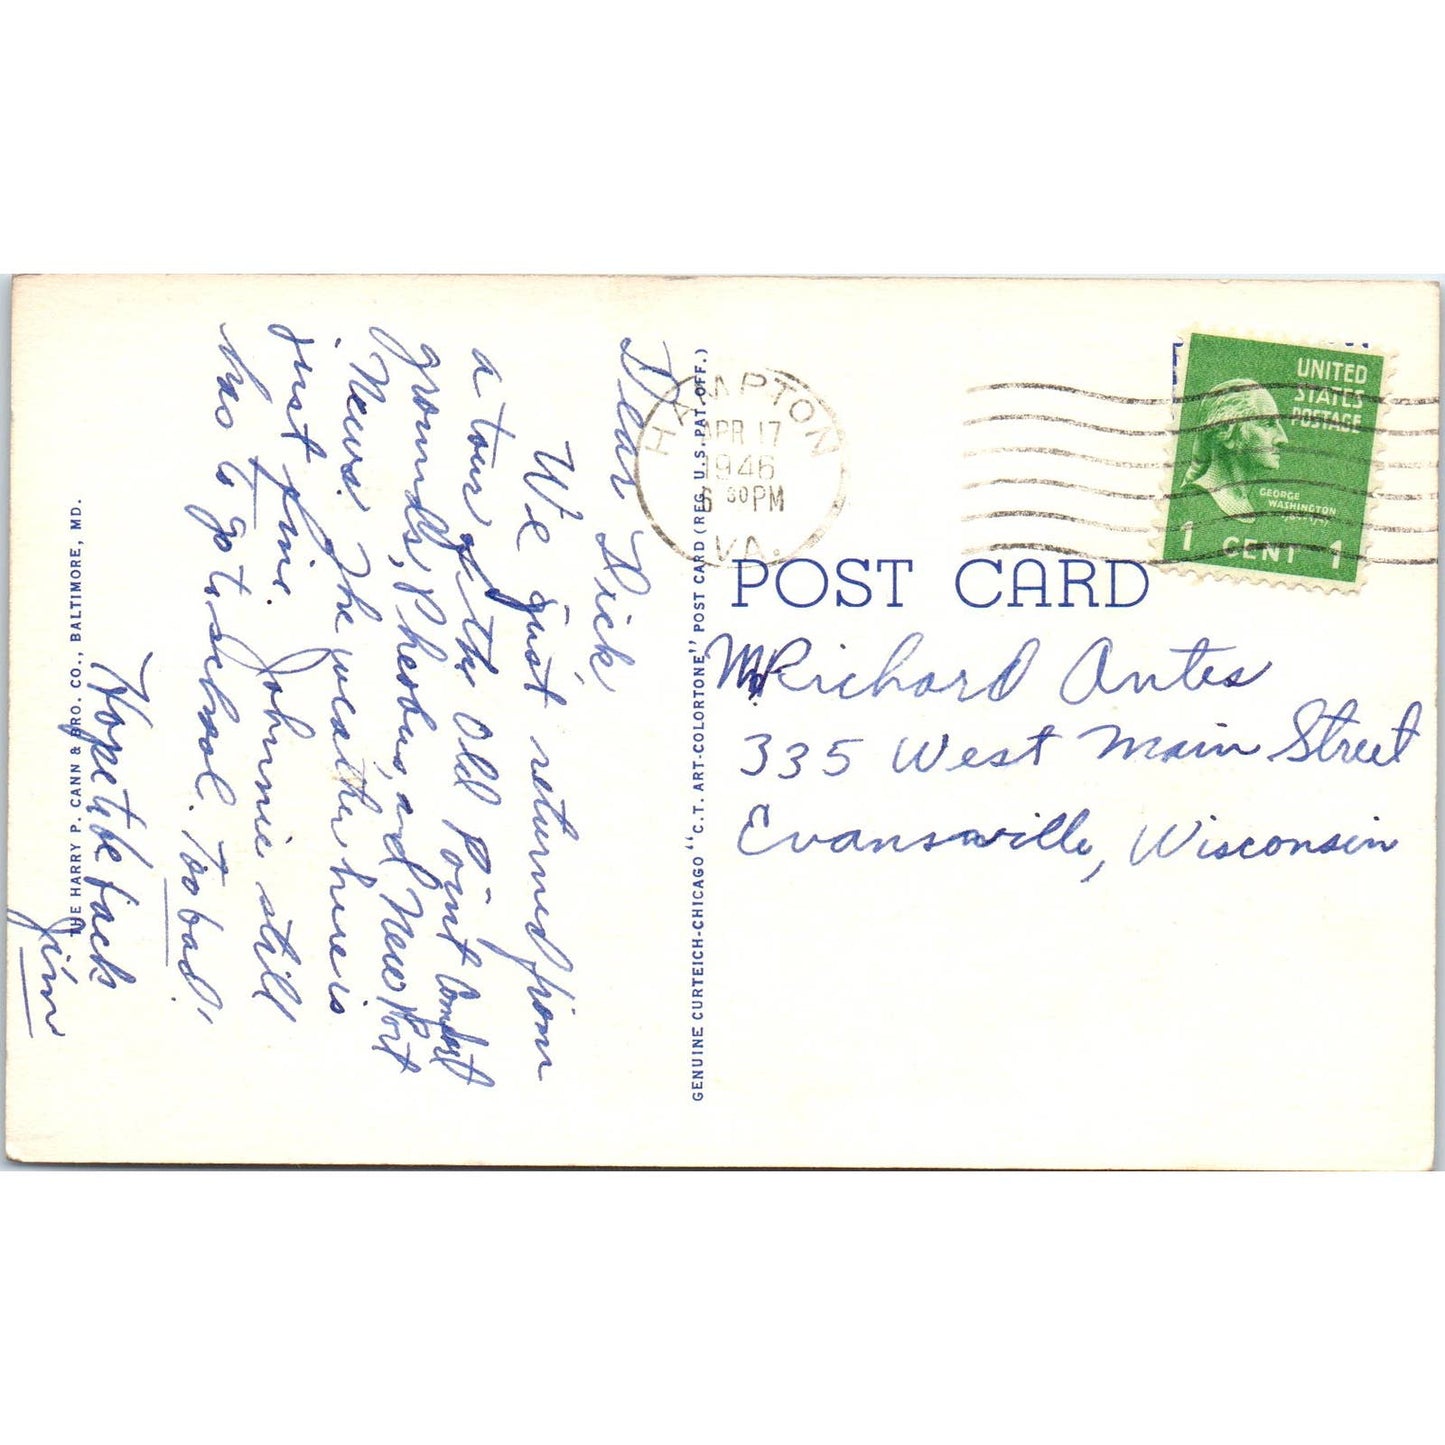 Dear Dick,
We just returned from
a tour of the Old Point Comfort
grounds, Pheobus, and New Port
News. The weather here is
just fine. Johnnie still
has to go to school. Too bad!
Hope to be back
Jim
THE HARRY P. CANN & BRO. CO., BALTIMORE, MD.
GENUINE CURTEICH-CHICAGO "C.T. ART-COLORTONE" POST CARD (REG. U.S. PAT. OFF.)
HAMPTON
APR 17
1946
6 30 PM
VA.
UNITED
STATES
POSTAGE
GEORGE
WASHINGTON
1 CENT 1
POST CARD
Mr Richard Antes
335 West Main Street
Evansville, Wisconsin